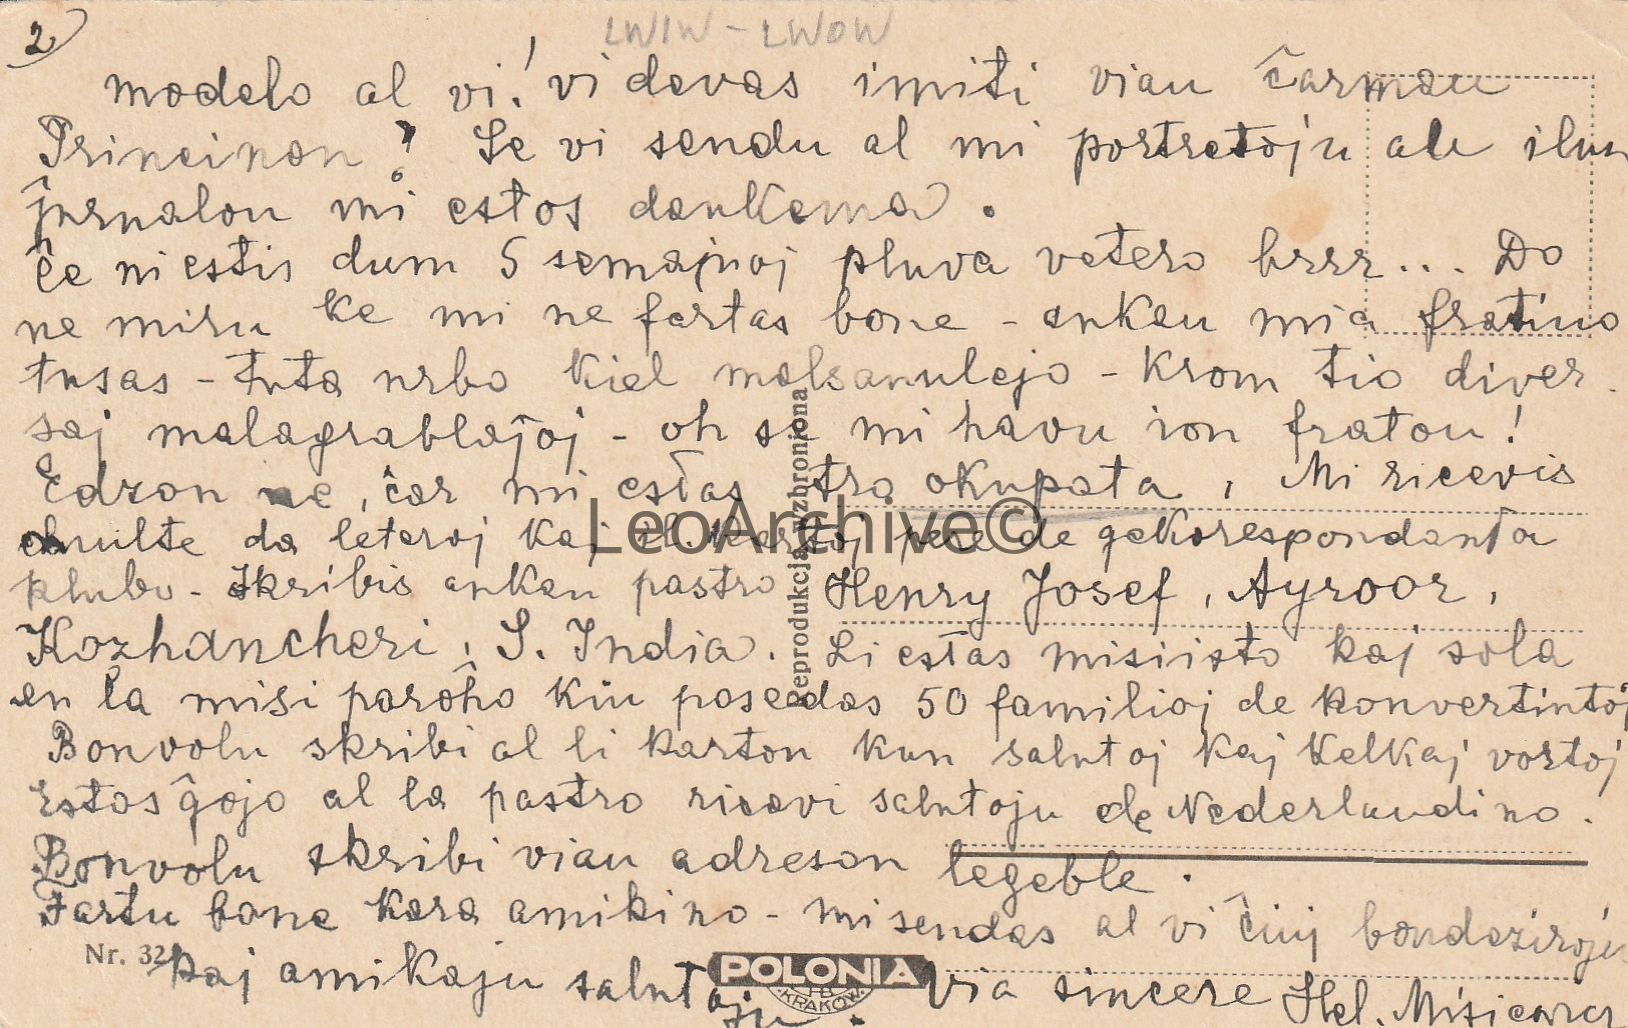 2
LWIW - LWOW
modelo al vi! vi devas imiti vian ĉarman
Princinon? Se vi sendu al mi portretojn aŭ ilus
ĵurnalon mi estos dankema.
Ĉe ni estis dum 5 semajnoj pluva vetero brrr... Do
ne miru ke mi ne fartas bone - ankau mia fratino
tusas - tuta urbo kiel malsanulejo - krom tio diver-
saj malagrablaĵoj - oh se mi havu ion fraton!
Edzon ne, ĉar mi estas tro okupata, Mi ricevis
multe da leteroj kaj il. kartoj pere de gekorespondanta
klubo - skribis ankau pastro Henry Josef, Ayroor,
Kozhancheri, S. India. Li estas misiisto kaj sola
en la misi paroĥo kiu posedas 50 familioj de konvertintoj
Bonvolu skribi al li karton kun salutoj kaj kelkaj vortoj
Estos ĝojo al la pastro ricevi salutojn de Nederlandino.
Bonvolu skribi vian adreson legeble.
Fartu bone kara amikino - mi sendas al vi ĉiuj bondezirojn
kaj amikajn salutojn. Via sincere Hel.
Reprodukcja wzbroniona
Nr. 32
POLONIA
KRAKÓW
LeoArchive©